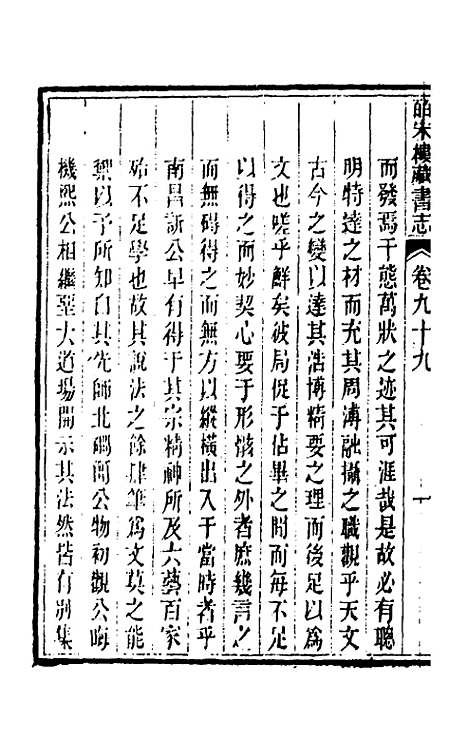 皕宋樓藏書志
卷九十九
十
而發焉千態萬狀之迹其可涯哉是故必有聰
明特達之材而充其周溥融攝之職觀乎天文
古今之變以達其浩博精要之理而後足以為
文也嗟乎鮮矣彼局促于佔畢之間而每不足
以得之而妙契心要于形骸之外者庶幾言之
而無碍得之而無方以縱橫出入于當時者乎
南昌訢公早有得于其宗精神所及六藝百家
殆不足學也故其說法之餘肆筆為文莫之能
禦以予所知自其先師北磵簡公物初觀公晦
機熙公相繼坐大道場開示其法然皆有別集